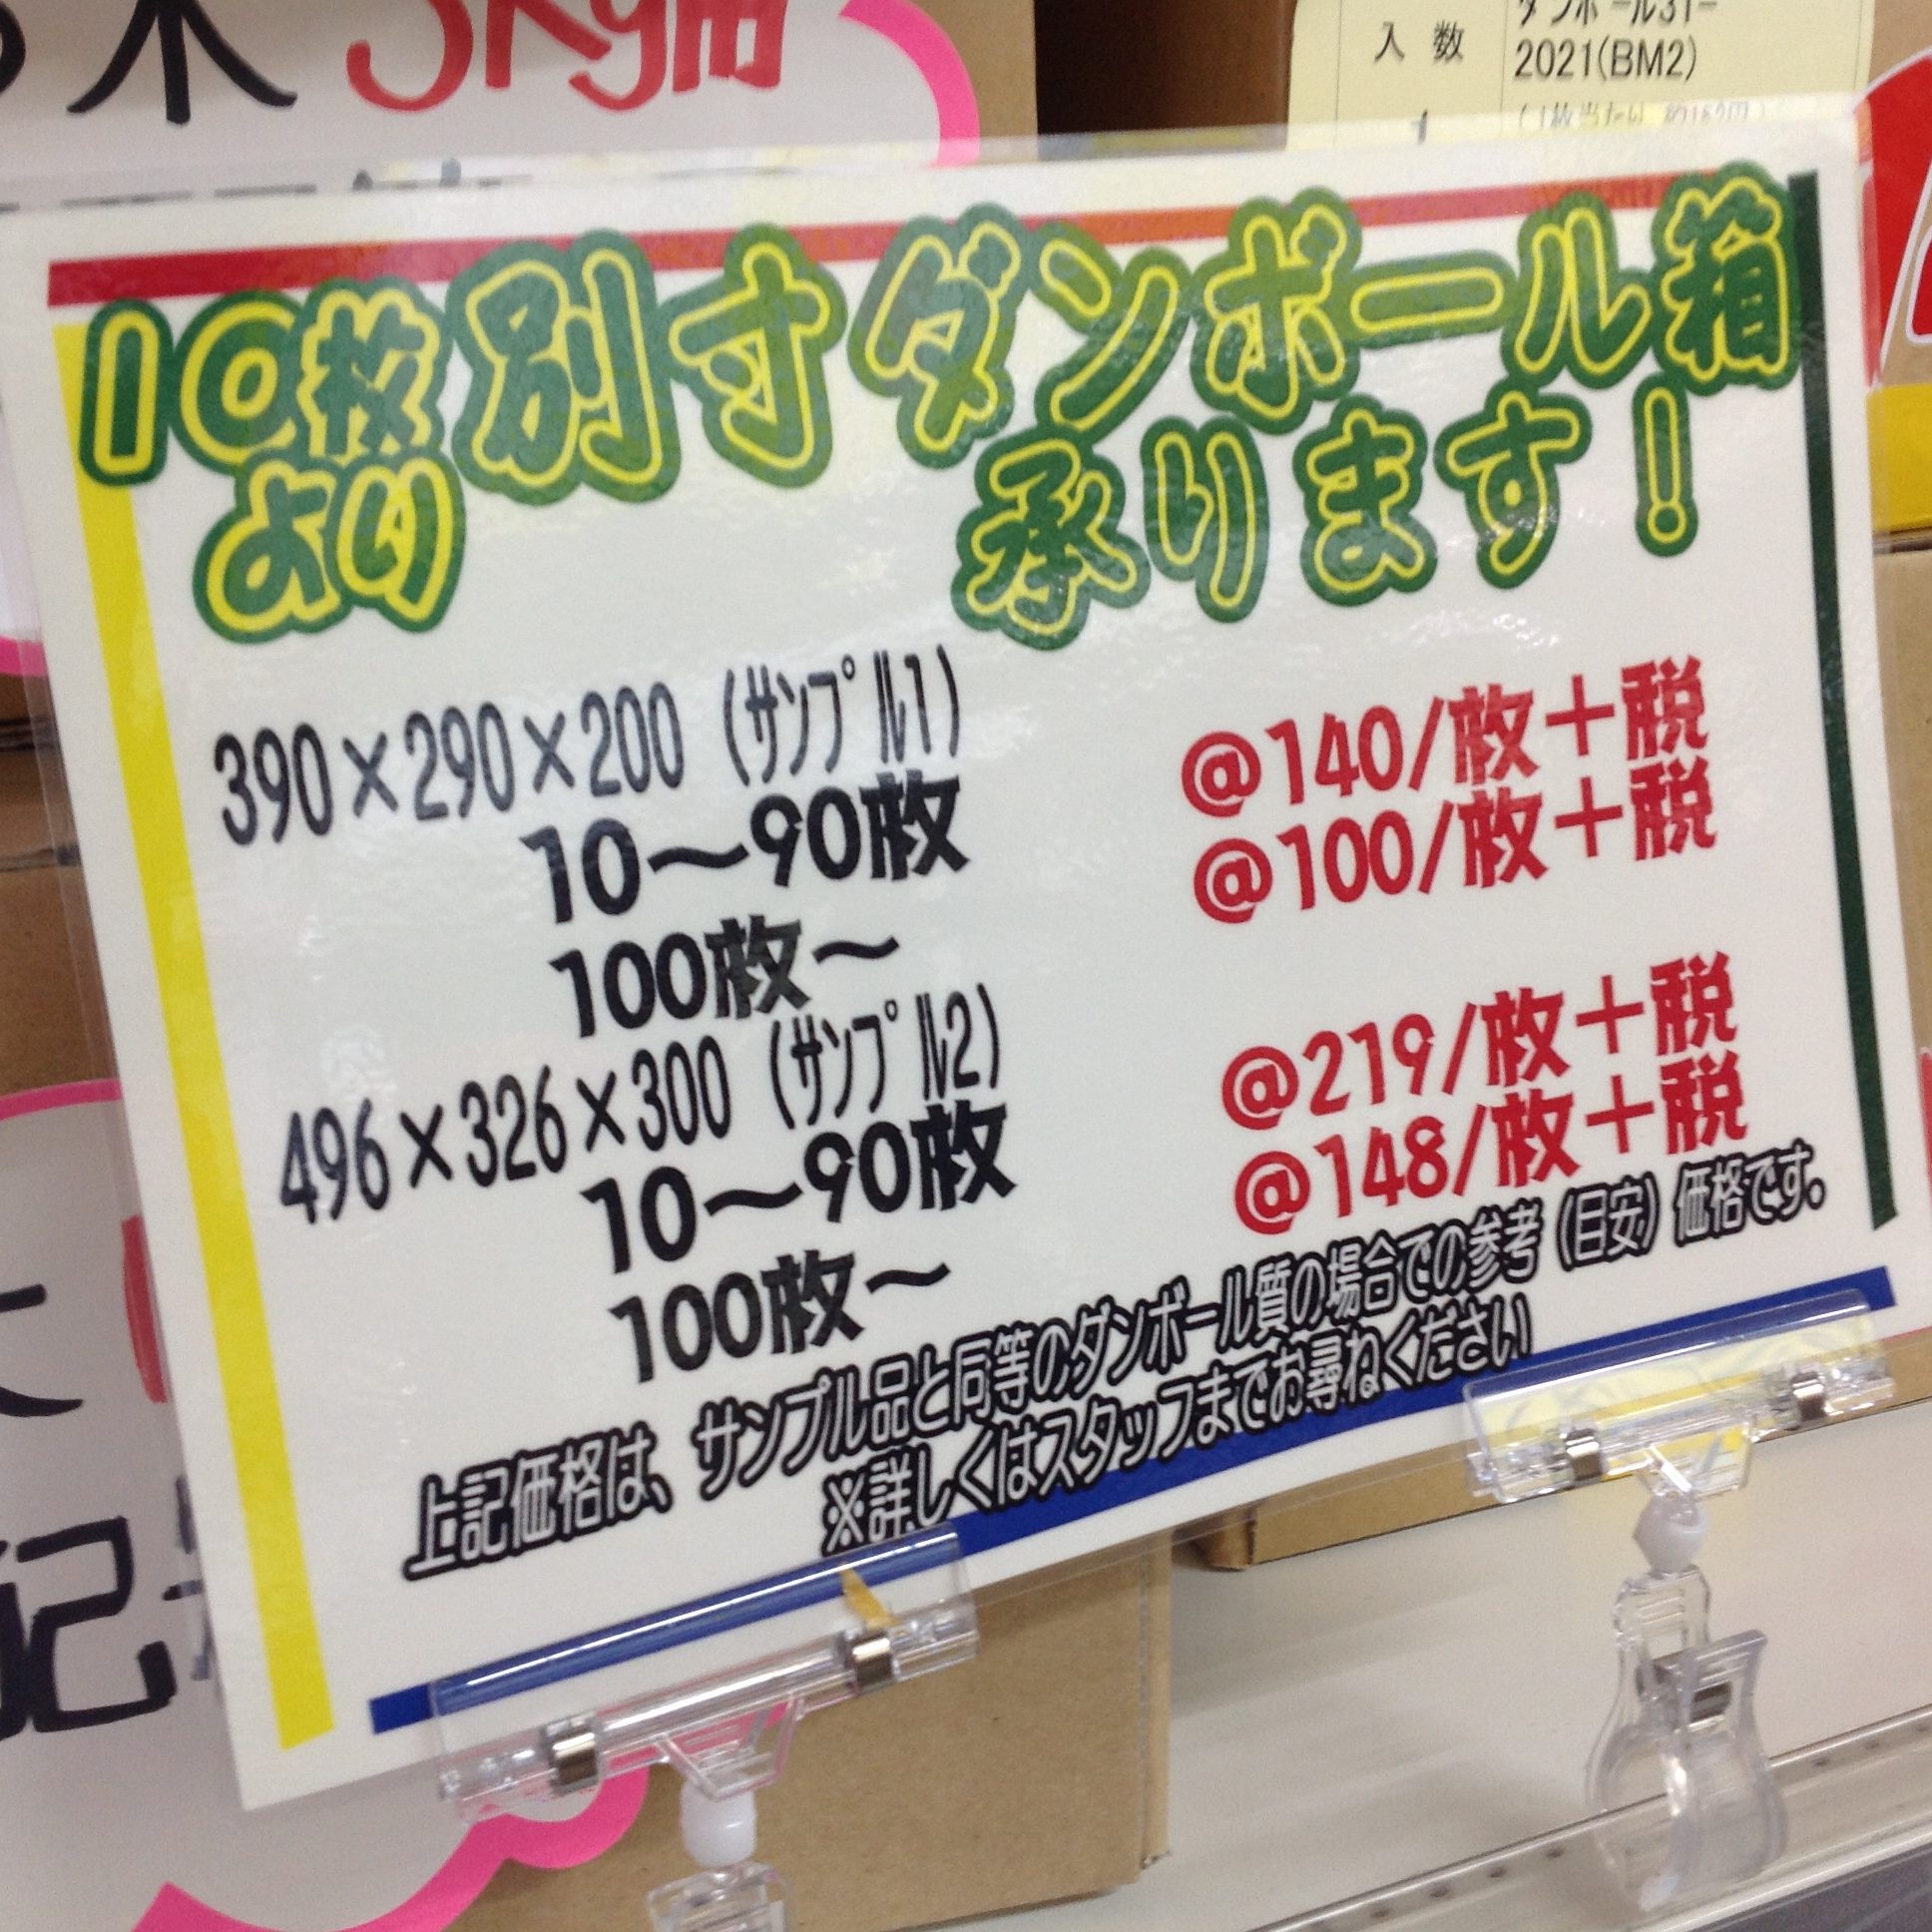 入 数
2021(BM2)
10枚より 別寸ダンボール箱
承ります!
390×290×200 (サンプル1)
@140/枚+税
10〜90枚
@100/枚+税
100枚〜
496×326×300 (サンプル2)
@219/枚+税
10〜90枚
@148/枚+税
100枚〜
上記価格は、サンプル品と同等のダンボール質の場合での参考(目安)価格です。
※詳しくはスタッフまでお尋ねください